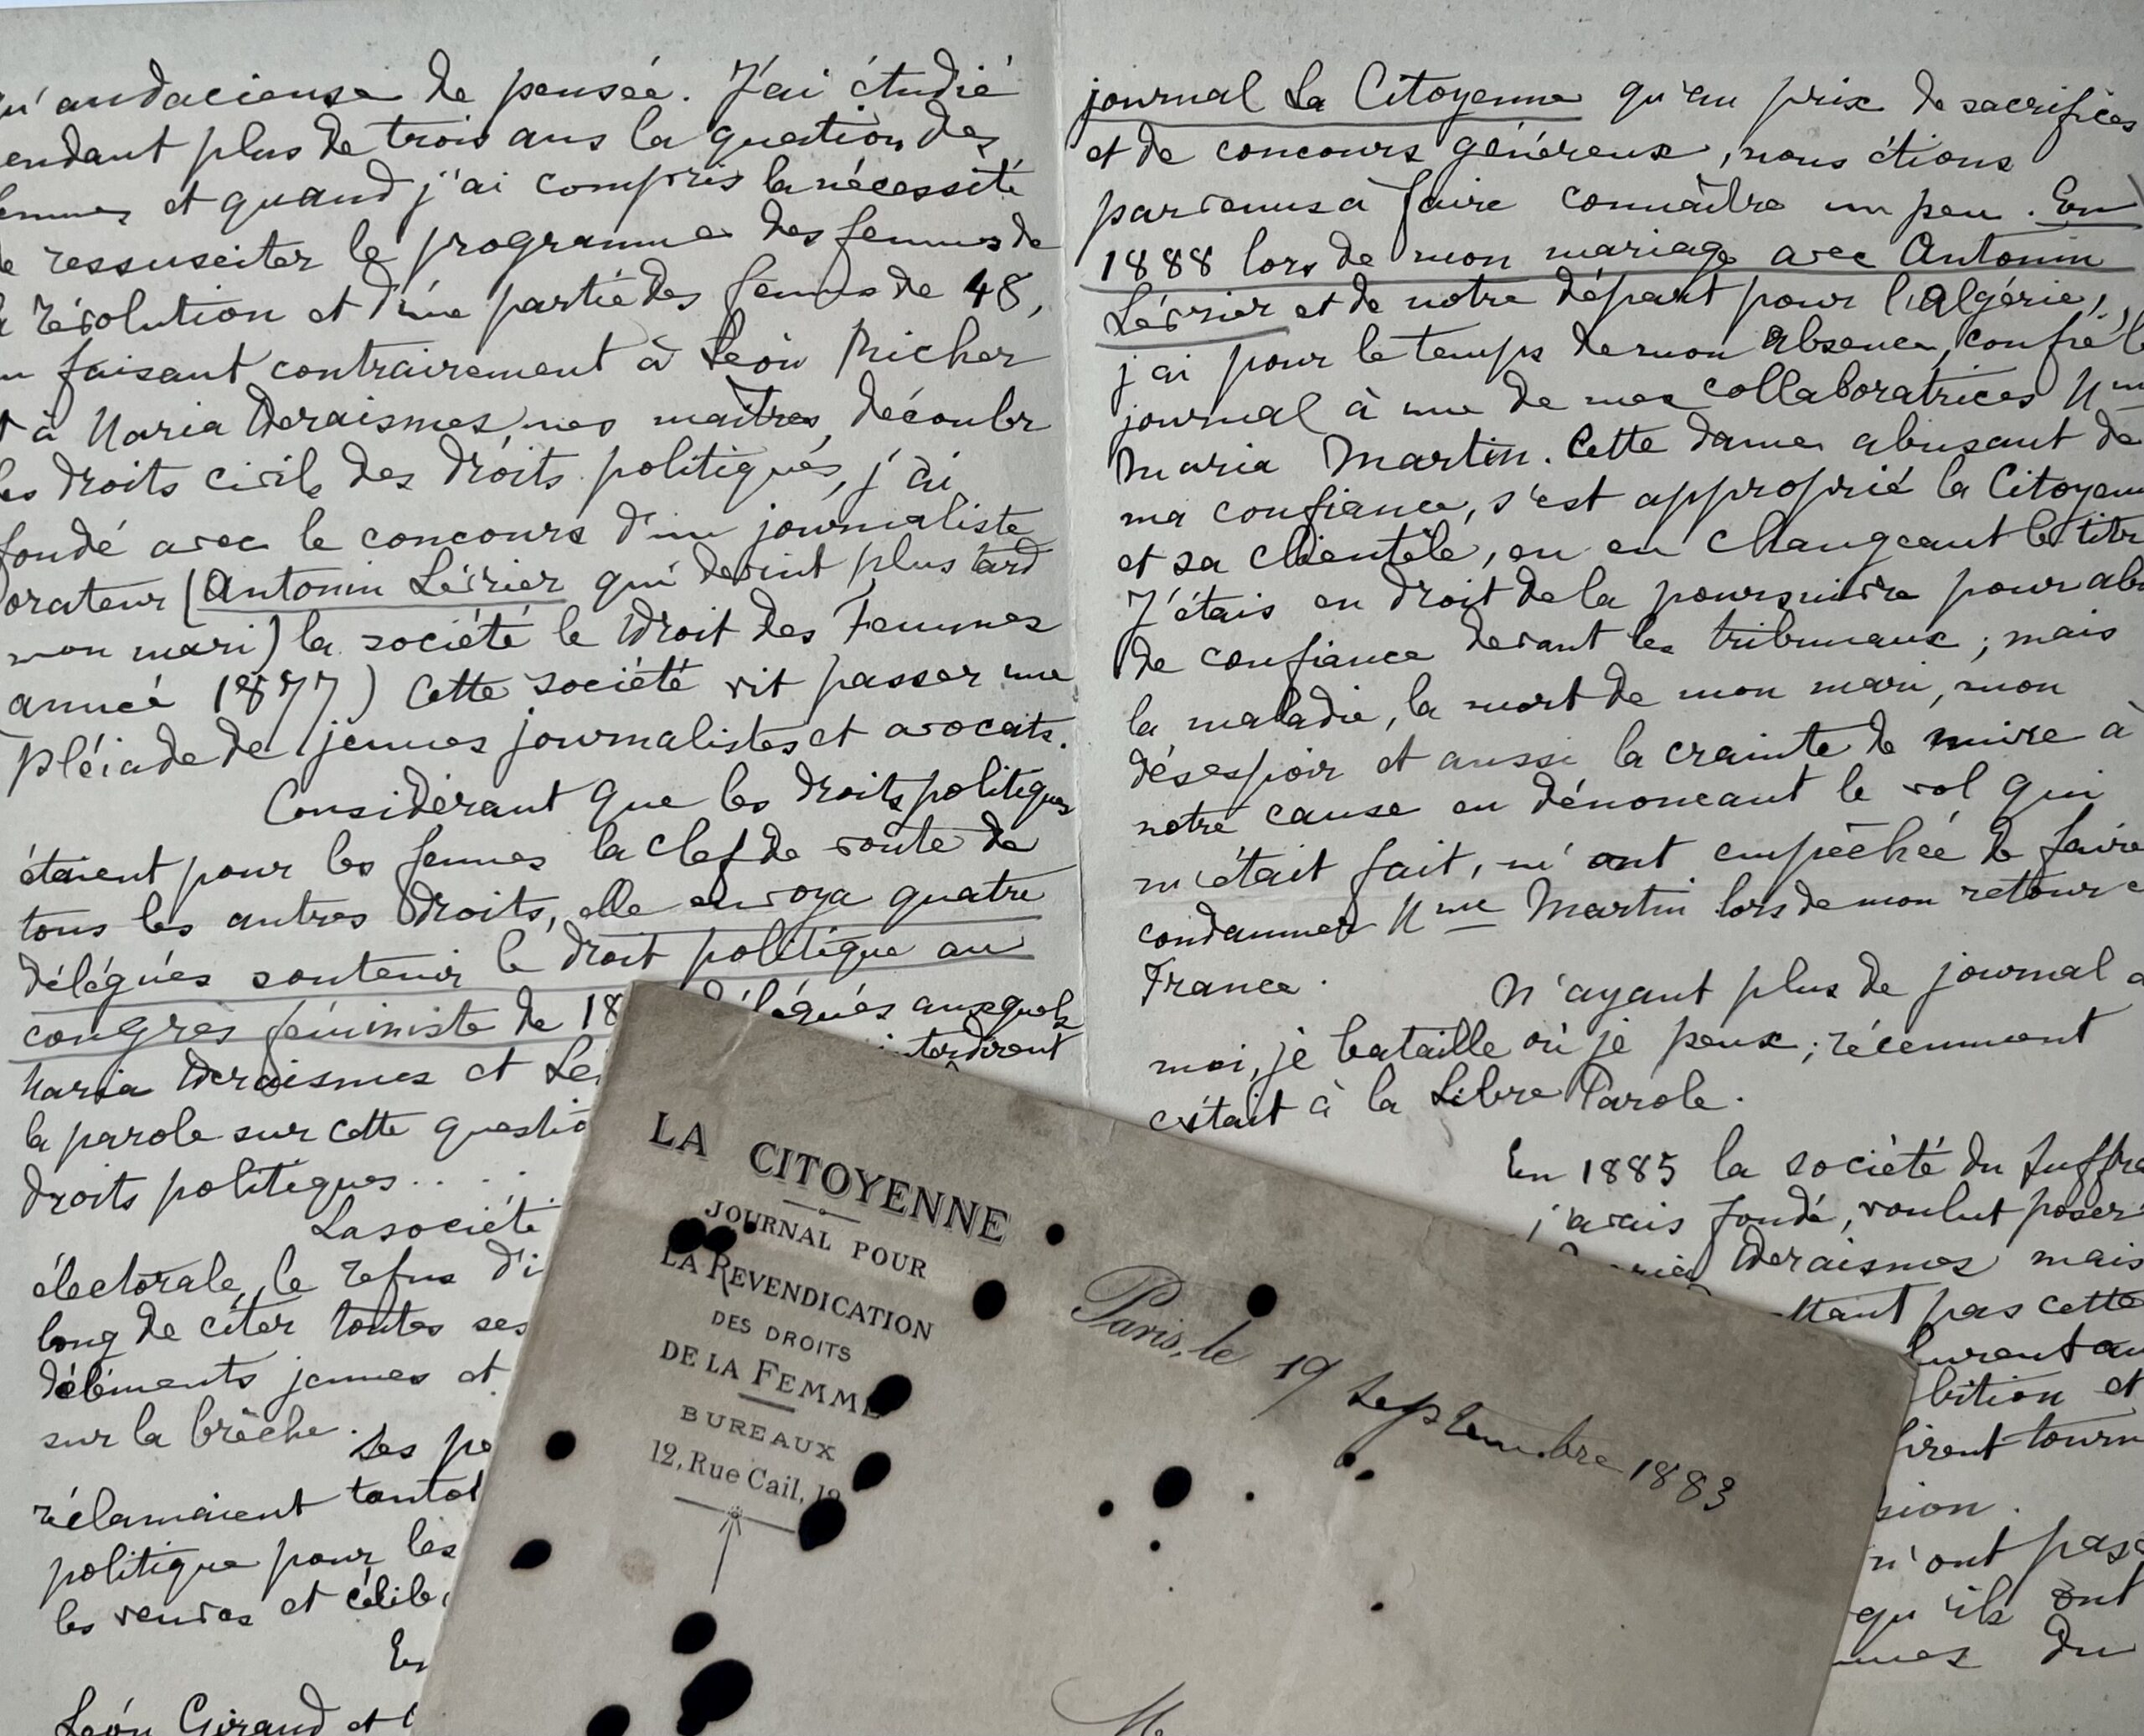 qu'audacieuse de pensée. J'ai étudié
pendant plus de trois ans la question des
femmes et quand j'ai compris la nécessité
de ressusciter le programme des femmes de
la révolution et d'une partie des femmes de 48,
en faisant contrairement à Léon Richer
et à Maria Deraismes nos maîtres, découler
les droits civils des droits politiques, j'ai
fondé avec le concours d'un journaliste
orateur (Antonin Lévrier qui devint plus tard
mon mari) la société le Droit des Femmes
année 1877) Cette société vit passer une
pléiade de jeunes journalistes et avocats.
Considérant que les droits politiques
étaient pour les femmes la clef de voûte de
tous les autres droits, elle envoya quatre
délégués soutenir le droit politique au
congrès féministe de 18 délégués auxquels
Maria Deraismes et Lé interdirent
la parole sur cette questio
droits politiques...
La société
électorale, le refus d'i
long de citer toutes ses
d'éléments jeunes et
sur la brèche.
Ses pé
réclamaient tantôt
politique pour les
les veuves et céliba
En
Léon Giraud et
journal La Citoyenne qu'au prix de sacrifices
et de concours généreux, nous étions
parvenus à faire connaître un peu. En
1888 lors de mon mariage avec Antonin
Lévrier et de notre départ pour l'Algérie,
j'ai pour le temps de mon absence, confié le
journal à une de mes collaboratrices Mme
Maria Martin. Cette dame abusant de
ma confiance, s'est approprié la Citoyenne
et sa clientèle, en en changeant le titre
J'étais en droit de la poursuivre pour abus
de confiance devant les tribunaux; mais
la maladie, la mort de mon mari, mon
désespoir et aussi la crainte de nuire à
notre cause en dénonçant le vol qui
m'était fait, m'ont empêchée de faire
condamner Mme Martin lors de mon retour e
France.
N'ayant plus de journal à
moi, je bataille où je peux; récemment
c'était à la Libre Parole.
En 1885 la société du Suffra
j'avais fondé, voulut poser
Maria Deraismes mais
ttant pas cette
lurent au
bition et
firent tourn
sion.
n'ont pas
qu'ils ont
mmes du
LA CITOYENNE
JOURNAL POUR
LA REVENDICATION
DES DROITS
DE LA FEMME
BUREAUX
12, Rue Cail, 12
Paris, le 19 septembre 1883
M